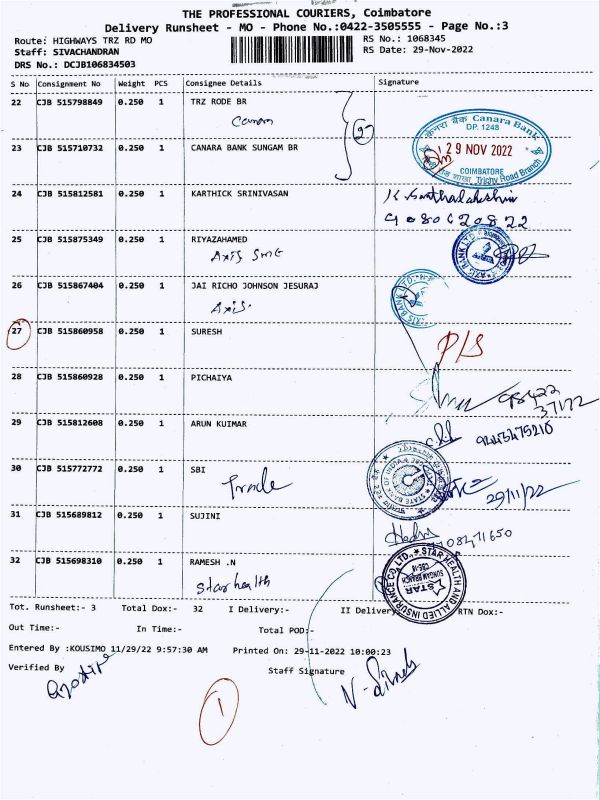 THE PROFESSIONAL COURIERS, Coimbatore
Delivery Runsheet - MO - Phone No.:0422-3505555 - Page No.:3
Route: HIGHWAYS TRZ RD MO
RS No.: 1068345
Staff: SIVACHANDRAN
RS Date: 29-Nov-2022
DRS No.: DCJB106834503
S No Consignment No Weight PCS Consignee Details Signature
22 CJB 515798849 0.250 1 TRZ RODE BR
Canara
23 CJB 515710732 0.250 1 CANARA BANK SUNGAM BR
केनरा बैंक Canara Bank
DP. 1248
29 NOV 2022
COIMBATORE
Trichy Road Branch
24 CJB 515812581 0.250 1 KARTHICK SRINIVASAN
9080620822
25 CJB 515875349 0.250 1 RIYAZAHAMED
AXIS SMG
AXIS BANK LTD
26 CJB 515867404 0.250 1 JAI RICHO JOHNSON JESURAJ
Axis.
AXIS BANK LTD.
27 CJB 515860958 0.250 1 SURESH
P/S
28 CJB 515860928 0.250 1 PICHAIYA
98422
37172
29 CJB 515812608 0.250 1 ARUN KUIMAR
9443475216
30 CJB 515772772 0.250 1 SBI
Trade
STATE BANK OF INDIA
29/11/22
31 CJB 515689812 0.250 1 SUJINI
32 CJB 515698310 0.250 1 RAMESH .N
Star health
STAR HEALTH AND ALLIED INSURANCE CO. LTD.
SUNGAM BRANCH
CBE-18
STAR
Tot. Runsheet:- 3 Total Dox:- 32 I Delivery:- II Delivery RTN Dox:-
Out Time:- In Time:- Total POD:-
Entered By :KOUSIMO 11/29/22 9:57:30 AM Printed On: 29-11-2022 10:00:23
Verified By Staff Signature
1